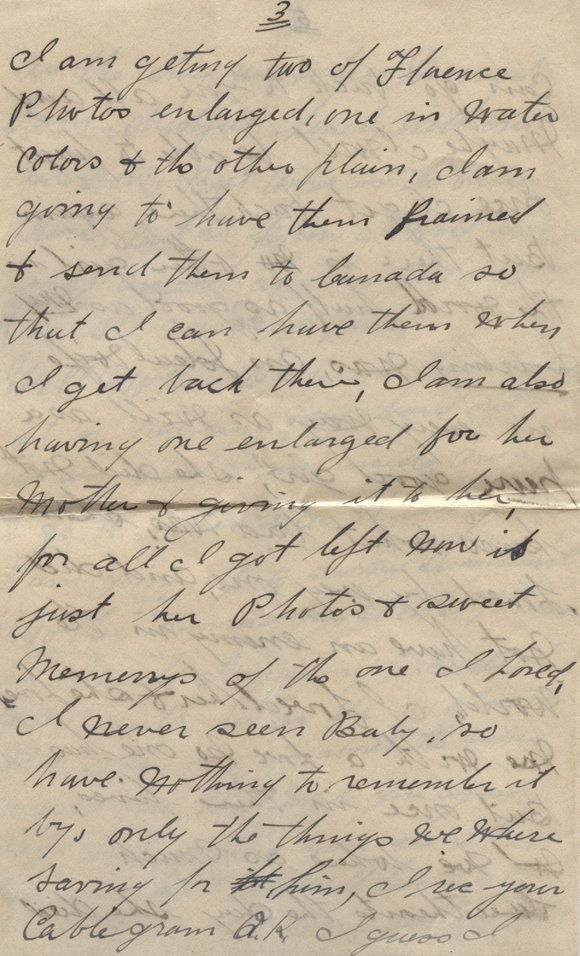 3
I am geting two of Florence
Photos enlarged, one in Water
Colors & the other plain, I am
going to have them fraimed
& send them to Canada so
that I can have them when
I get back there, I am also
having one enlarged for her
Mother & giving it to her,
for all I got left now is
just her Photos & sweet
Memerrys of the one I loved,
I never seen Baby, so
have nothing to remember it
by, only the things we where
saving for him, I rec your
Cablegram O.K. I guess I